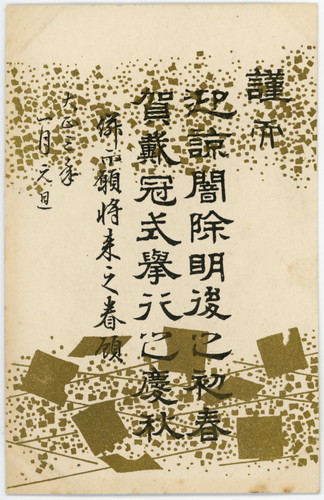 謹而
迎諒闇除明後之初春
賀戴冠式擧行之慶秋
併而願将来之眷顧
大正三年
一月元旦